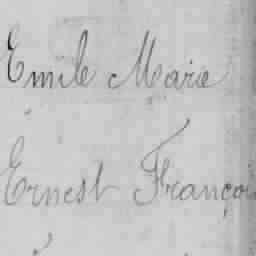 Emile Marie
Ernest Françoi